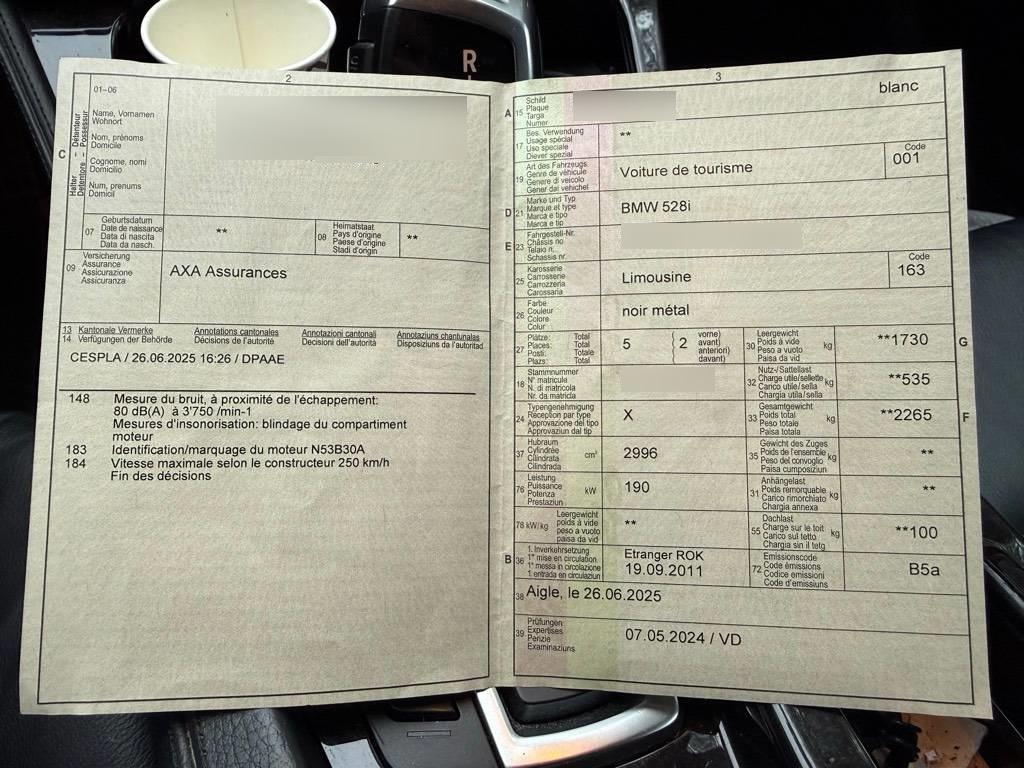 R
2
01–06
C
Halter – Détenteur
Detentore – Possessur
Name, Vornamen
Wohnort
Nom, prénoms
Domicile
Cognome, nomi
Domicilio
Num, prenums
Domicil
07
Geburtsdatum
Date de naissance
Data di nascita
Data da nasch.
**
08
Heimatstaat
Pays d'origine
Paese d'origine
Stadi d'origin
**
09
Versicherung
Assurance
Assicurazione
Assicuranza
AXA Assurances
13 Kantonale Vermerke Annotations cantonales Annotazioni cantonali Annotaziuns chantunalas
14 Verfügungen der Behörde Décisions de l'autorité Decisioni dell'autorità Disposiziuns da l'autoritad
CESPLA / 26.06.2025 16:26 / DPAAE
148 Mesure du bruit, à proximité de l'échappement:
80 dB(A) à 3'750 /min-1
Mesures d'insonorisation: blindage du compartiment
moteur
183 Identification/marquage du moteur N53B30A
184 Vitesse maximale selon le constructeur 250 km/h
Fin des décisions
3
A 15
Schild
Plaque
Targa
Numer
blanc
17
Bes. Verwendung
Usage spécial
Uso speciale
Diever spezial
**
19
Art des Fahrzeugs
Genre de véhicule
Genere di veicolo
Gener dal vehichel
Voiture de tourisme
Code
001
D 21
Marke und Typ
Marque et type
Marca e tipo
Marca e tip
BMW 528i
E 23
Fahrgestell-Nr.
Châssis no
Telaio n.
Schassis nr.
25
Karosserie
Carrosserie
Carrozzeria
Carossaria
Limousine
Code
163
26
Farbe
Couleur
Colore
Colur
noir métal
27
Plätze: Total
Places: Total
Posti: Totale
Plazs: Total
5
2
vorne)
avant)
anteriori)
davant)
30
Leergewicht
Poids à vide
Peso a vuoto
Paisa da vid
kg
**1730
G
18
Stammnummer
N° matricule
N. di matricola
Nr. da matricla
32
Nutz-/Sattellast
Charge utile/sellette
Carico utile/sella
Chargia utila/sella
kg
**535
24
Typengenehmigung
Réception par type
Approvazione del tipo
Approvaziun dal tip
X
33
Gesamtgewicht
Poids total
Peso totale
Paisa totala
kg
**2265
F
37
Hubraum
Cylindrée
Cilindrata
Cilindrada
cm³
2996
35
Gewicht des Zuges
Poids de l'ensemble
Peso del convoglio
Paisa cumposiziun
kg
**
76
Leistung
Puissance
Potenza
Prestaziun
kW
190
31
Anhängelast
Poids remorquable
Carico rimorchiato
Chargia annexa
kg
**
78 kW/kg
Leergewicht
poids à vide
peso a vuoto
paisa da vid
**
55
Dachlast
Charge sur le toit
Carico sul tetto
Chargia sin il tetg
kg
**100
B 36
1. Inverkehrsetzung
1re mise en circulation
1a messa in circolazione
1. entrada en circulaziun
Etranger ROK
19.09.2011
72
Emissionscode
Code émissions
Codice emissioni
Code d'emissiuns
B5a
38
Aigle, le 26.06.2025
39
Prüfungen
Expertises
Perizie
Examinaziuns
07.05.2024 / VD